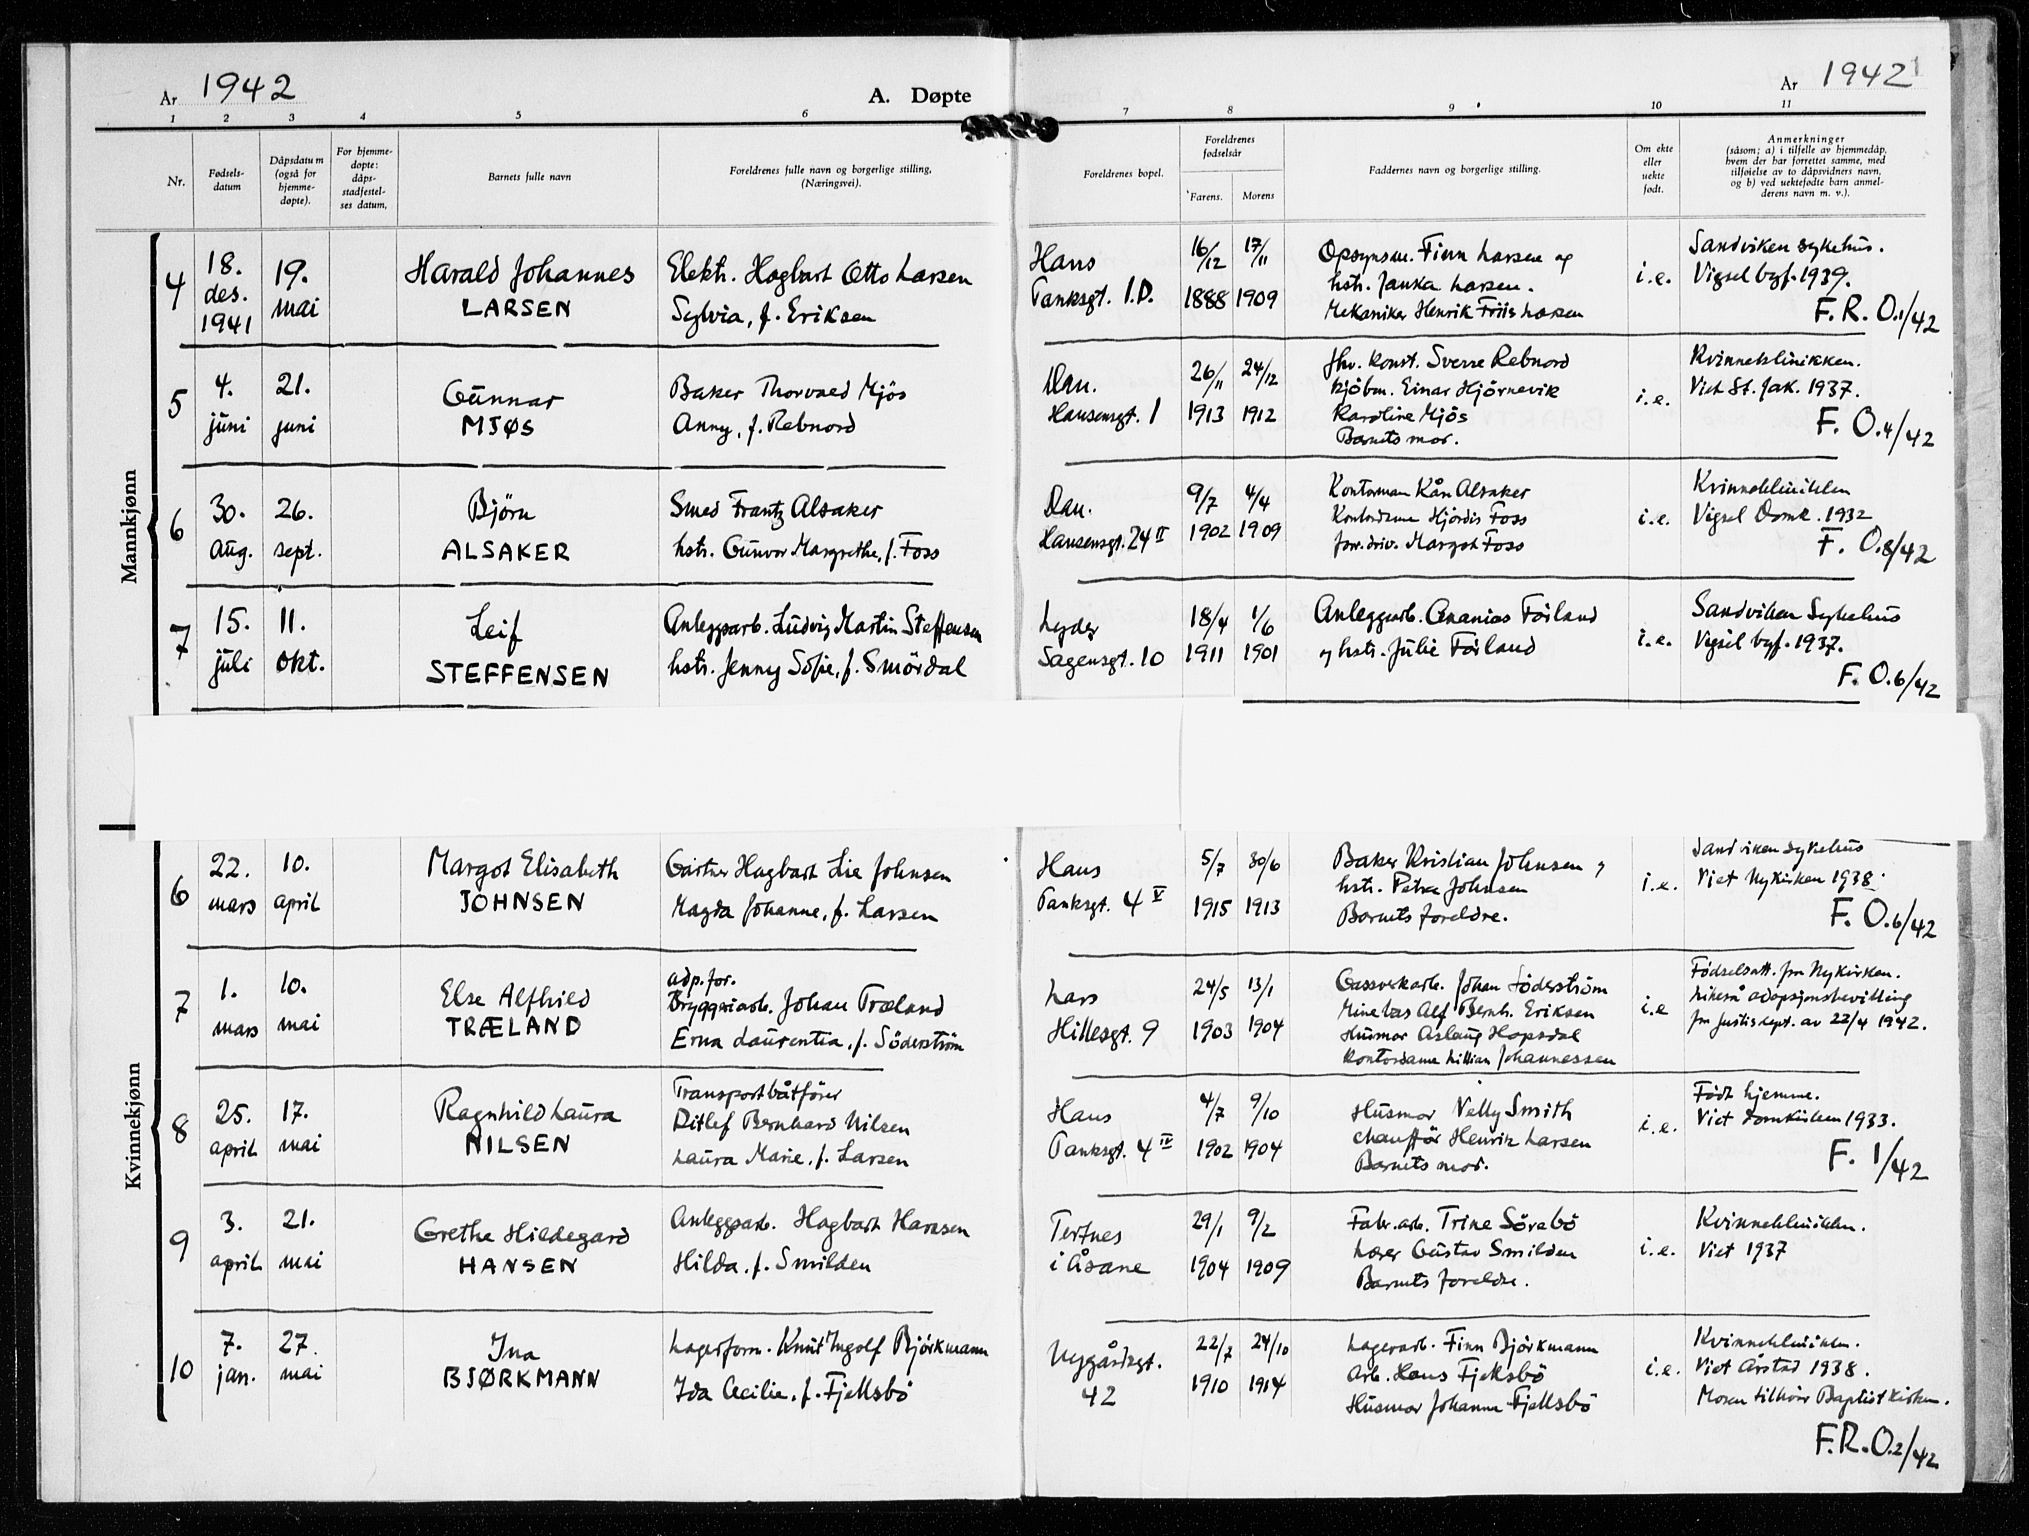 År 1942
A. Døpte
År 1942
1 2 3 4 5 6 7 8 9 10 11
Nr.
Fødsels-
datum
Dåpsdatum
(også for
hjemme-
døpte).
For hjemme-
døpte:
dåps-
stadfestel-
ses datum,
Barnets fulle navn
Foreldrenes fulle navn og borgerlige stilling,
(Næringsvei).
Foreldrenes bopel.
Foreldrenes
fødselsår
Farens.
Morens
Faddernes navn og borgerlige stilling.
Om ekte
eller
uekte
født.
Anmerkninger
(såsom; a) i tilfelle av hjemmedåp,
hvem der har forrettet samme, med
tilføielse av to dåpsvidners navn,
og b) ved uektefødte barn anmel-
derens navn m. v.).
Mannkjønn
4
18.
des.
1941
19.
mai
Harald Johannes
LARSEN
Elektr. Hagbart Otto Larsen
Sylvia, f. Eriksen
Hans
Tanksgt. 1.D.
16/12
1888
17/11
1909
Opsynsm. Finn Larsen og
hstr. Janka Larsen.
Mekaniker Henrik Friis Larsen
i.e.
Sandviken sykehus.
Vigsel byf. 1939.
F. R. O.1/42
5
4.
juni
21.
juni
Gunnar
MJØS
Baker Thorvald Mjös
Anny, f. Rebnord
Dan.
Hansensgt. 1
26/11
1913
24/12
1912
fhv. konst. Sverre Rebnord
kjöbm. Einar Hjörnevik
Karoline Mjös
Barnets mor.
i.e.
Kvinneklinikken.
Viet St. Jak. 1937.
F. O.4/42
6
30.
aug.
26.
sept.
Björn
ALSAKER
Smed Frantz Alsaker
hstr. Gunvor Margrethe, f. Foss
Dan.
Hansensgt. 24 II
9/7
1902
4/4
1909
Kontorman Kån Alsaker
Kontordame Hjördis Foss
forr.driv. Margot Foss
i.e.
Kvinneklinikken
Vigsel Domk. 1932
F. O.8/42
7
15.
juli
11.
okt.
Leif
STEFFENSEN
Anleggsarb. Ludvig Martin Steffensen
hstr. Jenny Sofie, f. Smördal
Lyder
Sagensgt. 10
18/4
1911
1/6
1901
Anleggsarb. Ananias Förland
og hstr. Julie Förland
i.e.
Sandviken Sykehus
Vigsel byf. 1937.
F. O.6/42
Kvinnekjønn
6
22.
mars
10.
april
Margot Elisabeth
JOHNSEN
Gartner Hagbart Lie Johnsen
Magda Johanne, f. Larsen
Hans
Tanksgt. 4 V
5/7
1915
30/6
1913
Baker Kristian Johnsen og
hstr. Petra Johnsen
Barnets foreldre.
i.e.
Sandviken sykehus
Viet Nykirken 1938.
F. O.6/42
7
1.
mars
10.
mai
Else Alfhild
TRÆLAND
adp. for.
Bryggeriarb. Johan Træland
Erna Laurentia, f. Söderström
Lars
Hillesgt. 9
24/5
1903
13/1
1904
Gassverkarb. Johan Söderström
Alf Bernh. Eriksen
Husmor Aslaug Hopsdal
Kontordame Lillian Johannessen
i.e
Fødselsatt. fra Nykirken.
Likeså adopsjonsbevilling
fra Justisdept. av 22/4 1942.
8
25.
april
17.
mai
Ragnhild Laura
NILSEN
Transportbåtförer
Ditlef Bernhard Nilsen
Laura Marie, f. Larsen
Hans
Tanksgt. 4 IV
4/7
1902
9/10
1904
Husmor Nelly Smith
chauffør Henrik Larsen
Barnets mor.
i.e.
Født hjemme.
Viet Domkirken 1933.
F. 1/42
9
3.
april
21.
mai
Grethe Hildegard
HANSEN
Anleggsarb. Hagbart Hansen
Hilda, f. Smilden
Tertnes
i Åsane
29/1
1904
9/2
1909
Fabr. arb. Trine Sörebö
Gustav Smilden
Barnets foreldre.
i.e.
Kvinneklinikken.
Viet 1937
10
7.
jan.
27.
mai
Ina
BJØRKMANN
Lagerform. Knut Ingolf Björkmann
Ida Cecilie, f. Fjellsbö
Nygårdsgt.
42
22/7
1910
24/10
1914
Lagerarb. Finn Björkmann
Arb. Hans Fjellsbö
Husmor Johanne Fjellsbö
i.e.
Kvinneklinikken.
Viet Årstad 1938.
Moren tilhører Baptistkirken.
F.R.O.2/42